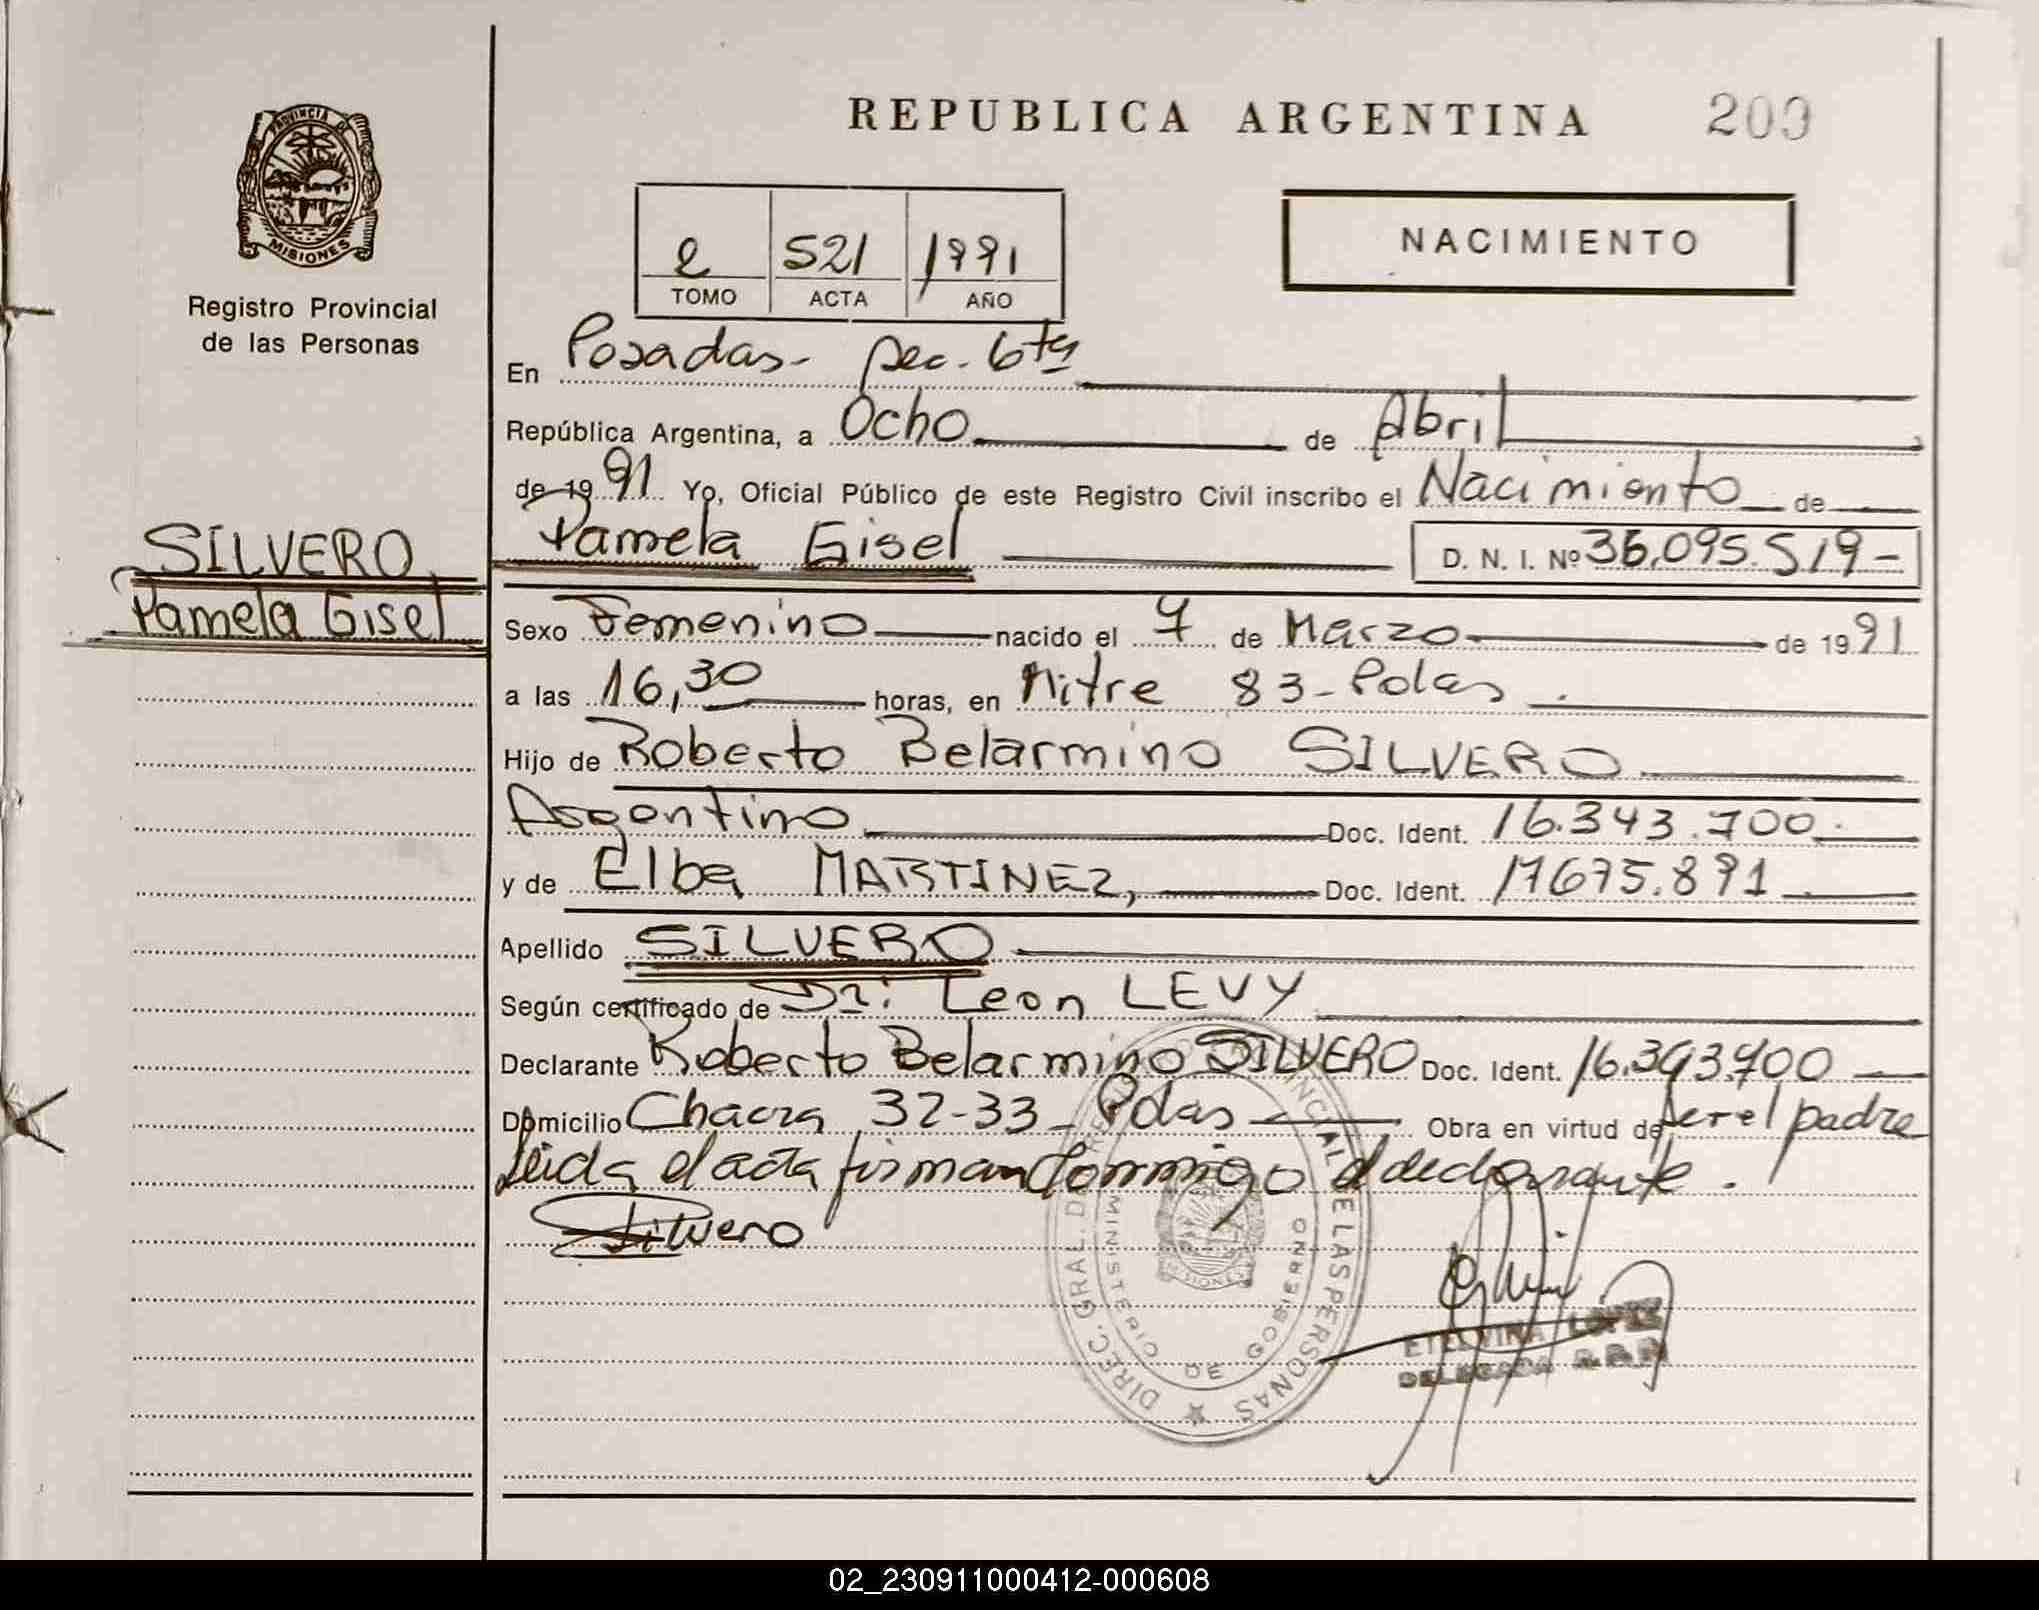 REPUBLICA ARGENTINA 200
PROVINCIA DE
MISIONES
Registro Provincial
de las Personas
2 521 1991
TOMO ACTA AÑO
NACIMIENTO
En Posadas- Sec. 6ta
República Argentina, a Ocho de Abril
de 1991 Yo, Oficial Público de este Registro Civil inscribo el Nacimiento de
SILVERO
Pamela Gisel
Pamela Gisel D. N. I. Nº 36.095.519-
Sexo Femenino nacido el 7 de Marzo de 1991
a las 16,30 horas, en Mitre 83- Pdas.
Hijo de Roberto Belarmino SILVERO
Argentino Doc. Ident. 16.343.700.
y de Elba MARTINEZ, Doc. Ident. 17675.891
Apellido SILVERO
Según certificado de Dr: Leon LEVY
Declarante Roberto Belarmino SILVERO Doc. Ident. 16.343.700
Domicilio Chacra 32-33- Pdas Obra en virtud de ser el padre
Leida el acta firman conmigo el declarante.
Silvero
DIREC. GRAL. DE REG. PROVINCIAL DE LAS PERSONAS
MINISTERIO DE GOBIERNO
MISIONES
ETELVINA LOPEZ
DELEGADA R.P.P.
02_230911000412-000608